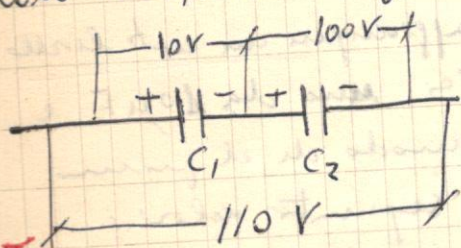 10V 100V
+ - + -
C1 C2
110 V